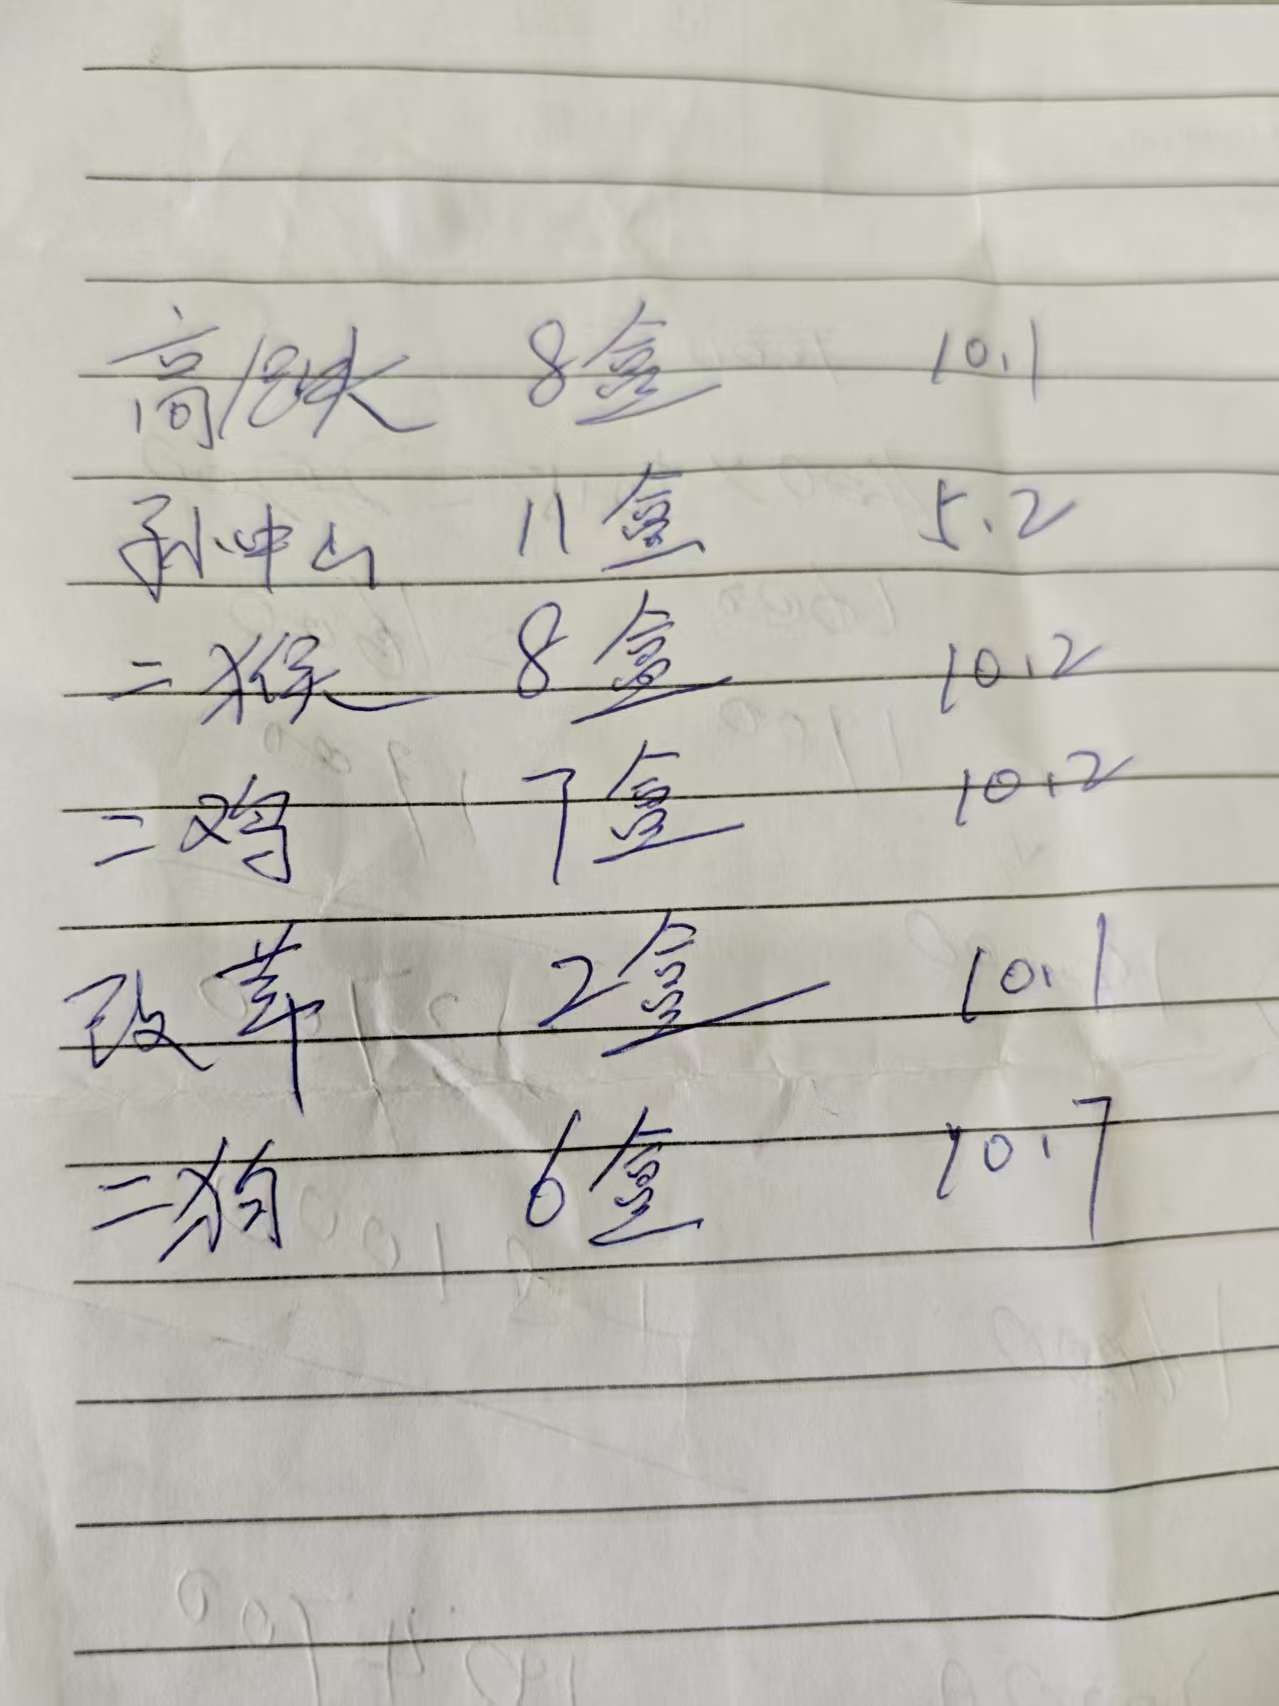 高 8盒 10.1
孙中山 11盒 5.2
二猴 8盒 10.2
二鸡 7盒 10.2
改革 2盒 10.1
二狗 6盒 10.7